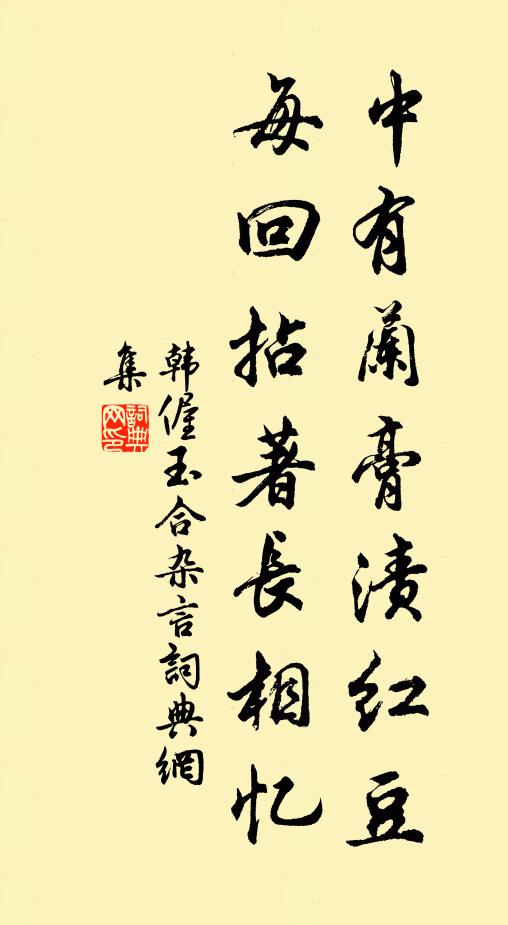 中有蘭膏漬红豆
每回拈著長相忆
韩偓玉合杂言詞典網
集
詞典网印